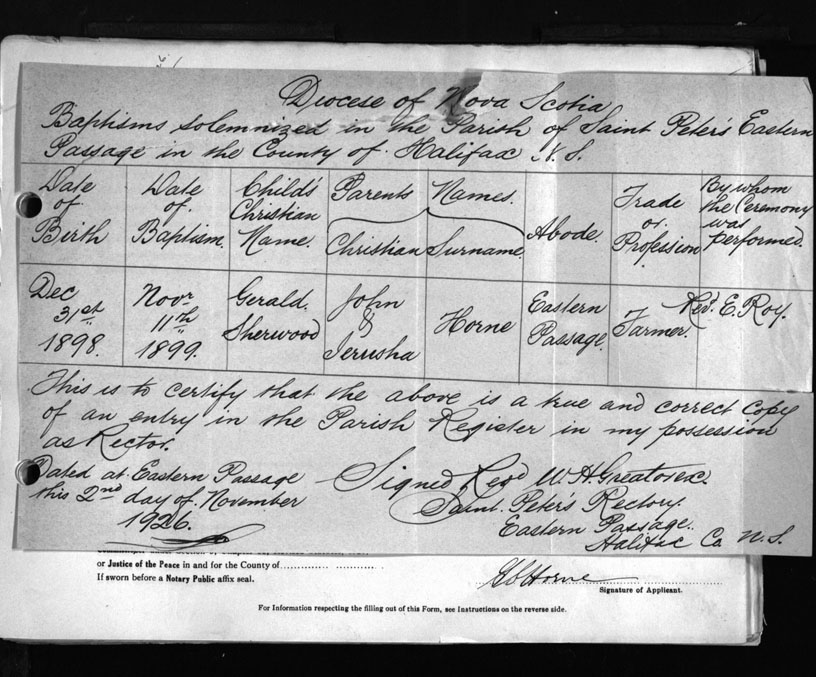 Diocese of Nova Scotia
Baptisms solemnized in the Parish of Saint Peter's Eastern
Passage in the County of Halifax N.S.
Date of Birth
Date of Baptism.
Child's Christian Name.
Parents Names.
Christian
Surname.
Abode.
Trade or Profession
By whom the Ceremony was performed.
Dec 31st 1898.
Novr 11th 1899.
Gerald Sherwood
John & Jerusha
Horne
Eastern Passage
Farmer.
Revd. E. Roy.
This is to certify that the above is a true and correct copy
of an entry in the Parish Register in my possession
as Rector.
Dated at Eastern Passage
this 2nd day of November
1926.
Signed Revd W. H. Greatorex.
Saint. Peter's Rectory.
Eastern Passage.
Halifax Co N.S.
or Justice of the Peace in and for the County of
If sworn before a Notary Public affix seal.
GS Horne
Signature of Applicant.
For Information respecting the filling out of this Form, see Instructions on the reverse side.